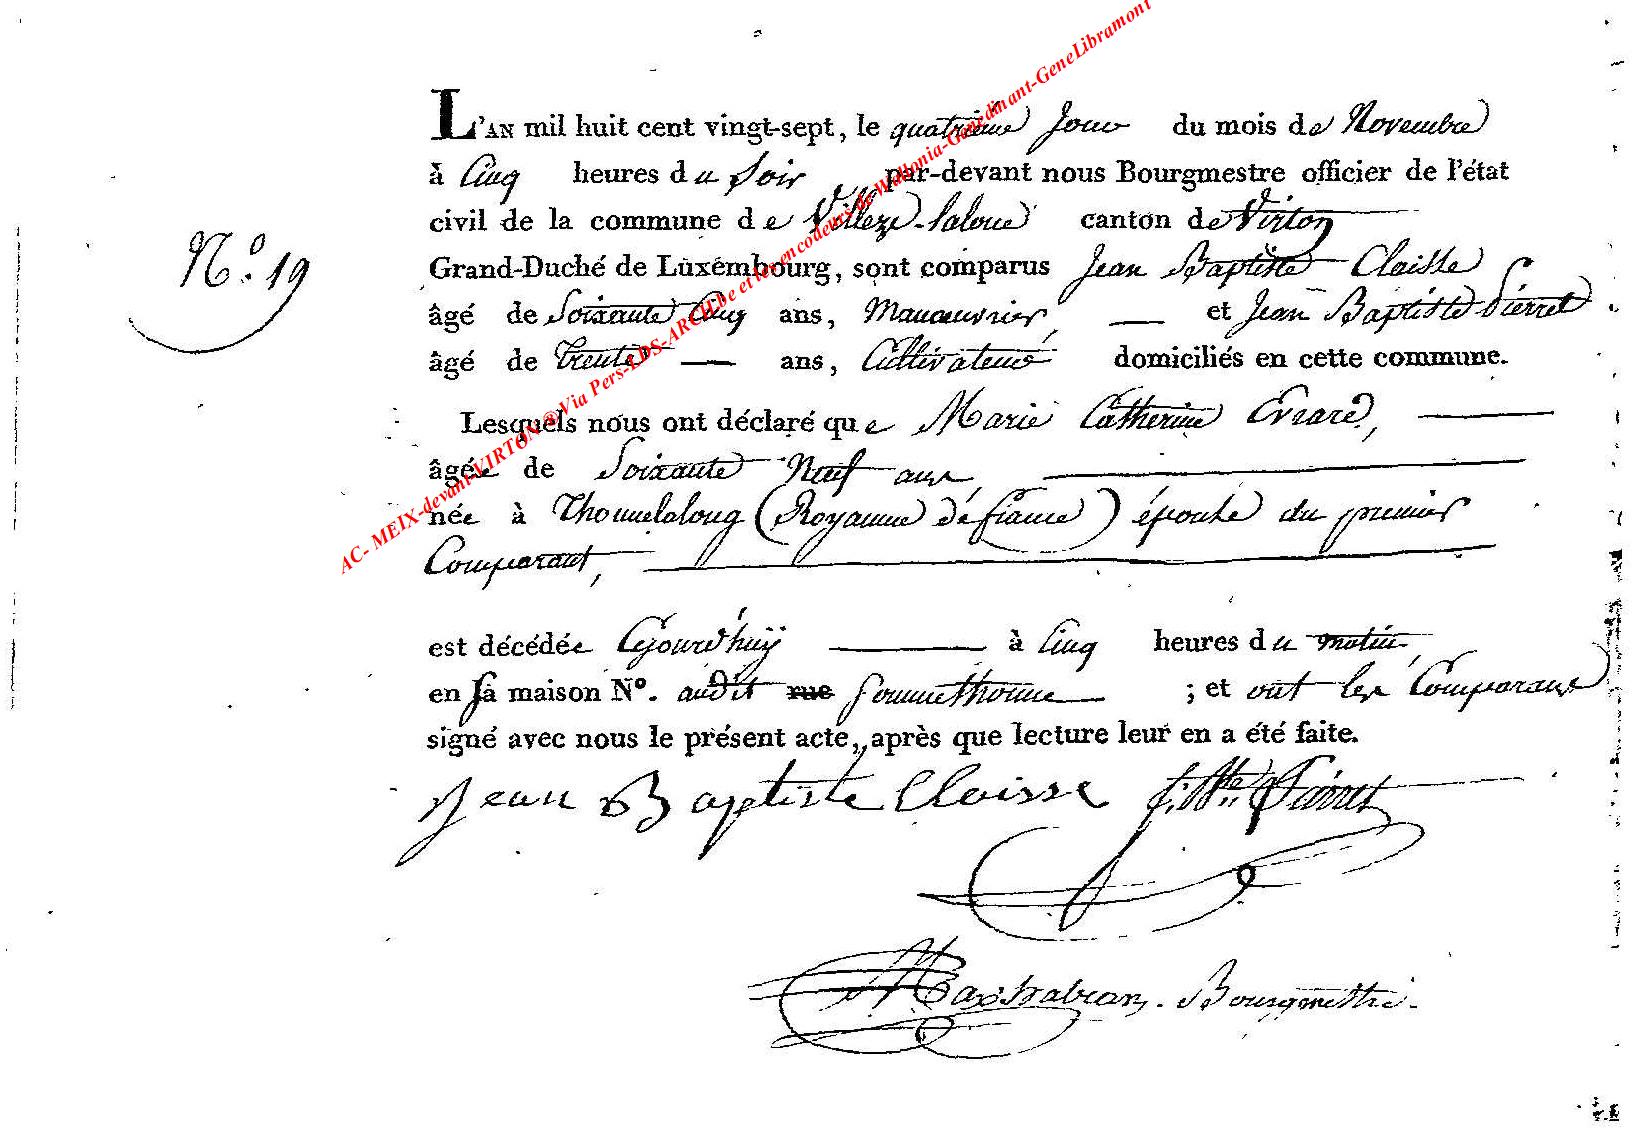 L'AN mil huit cent vingt-sept, le quatrieme Jour du mois de Novembre
à Cinq heures du Soir par-devant nous Bourgmestre officier de l'état
civil de la commune de Villers-laloue canton de Virton
N.o 19
Grand-Duché de Luxembourg, sont comparus Jean Baptiste Claisse
âgé de Soixante Cinq ans, Manoeuvrier, et Jean Baptiste Pierret
âgé de Trente ans, Cultivateur domiciliés en cette commune.
Lesquels nous ont déclaré que Marie Catherine Evrard,
âgée de Soixante Neuf ans,
née à Thonnelalong (Royaume de france) épouse du premier
Comparant,
est décédée Cejourd'huÿ à Cinq heures du matin,
en sa maison N°. audit rue Sommethonne ; et ont les Comparans
signé avec nous le présent acte, après que lecture leur en a été faite.
Jean Baptiste Claisse J. Bte Pierret
Bourgmestre.
AC- MEIX-devant-VIRTON ® Via Pers-LDS-ARCH.be et les encodeurs de Wallonia-Genedinant-GeneLibramont